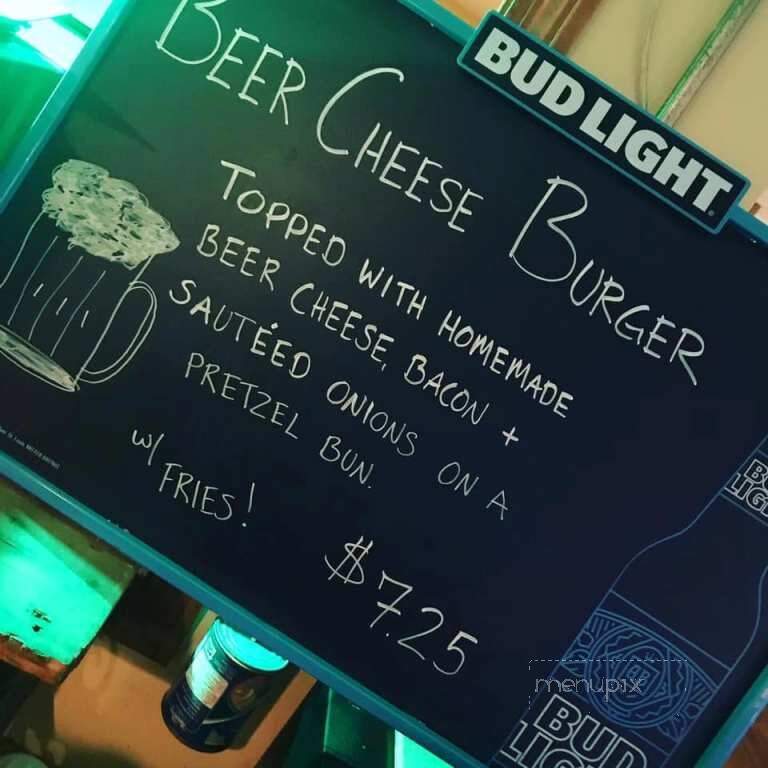 BUD LIGHT
BEER CHEESE BURGER
TOPPED WITH HOMEMADE
BEER CHEESE, BACON +
SAUTÉED ONIONS ON A
PRETZEL BUN.
w/
FRIES!
$7.25
BUD
LIGHT
menupix